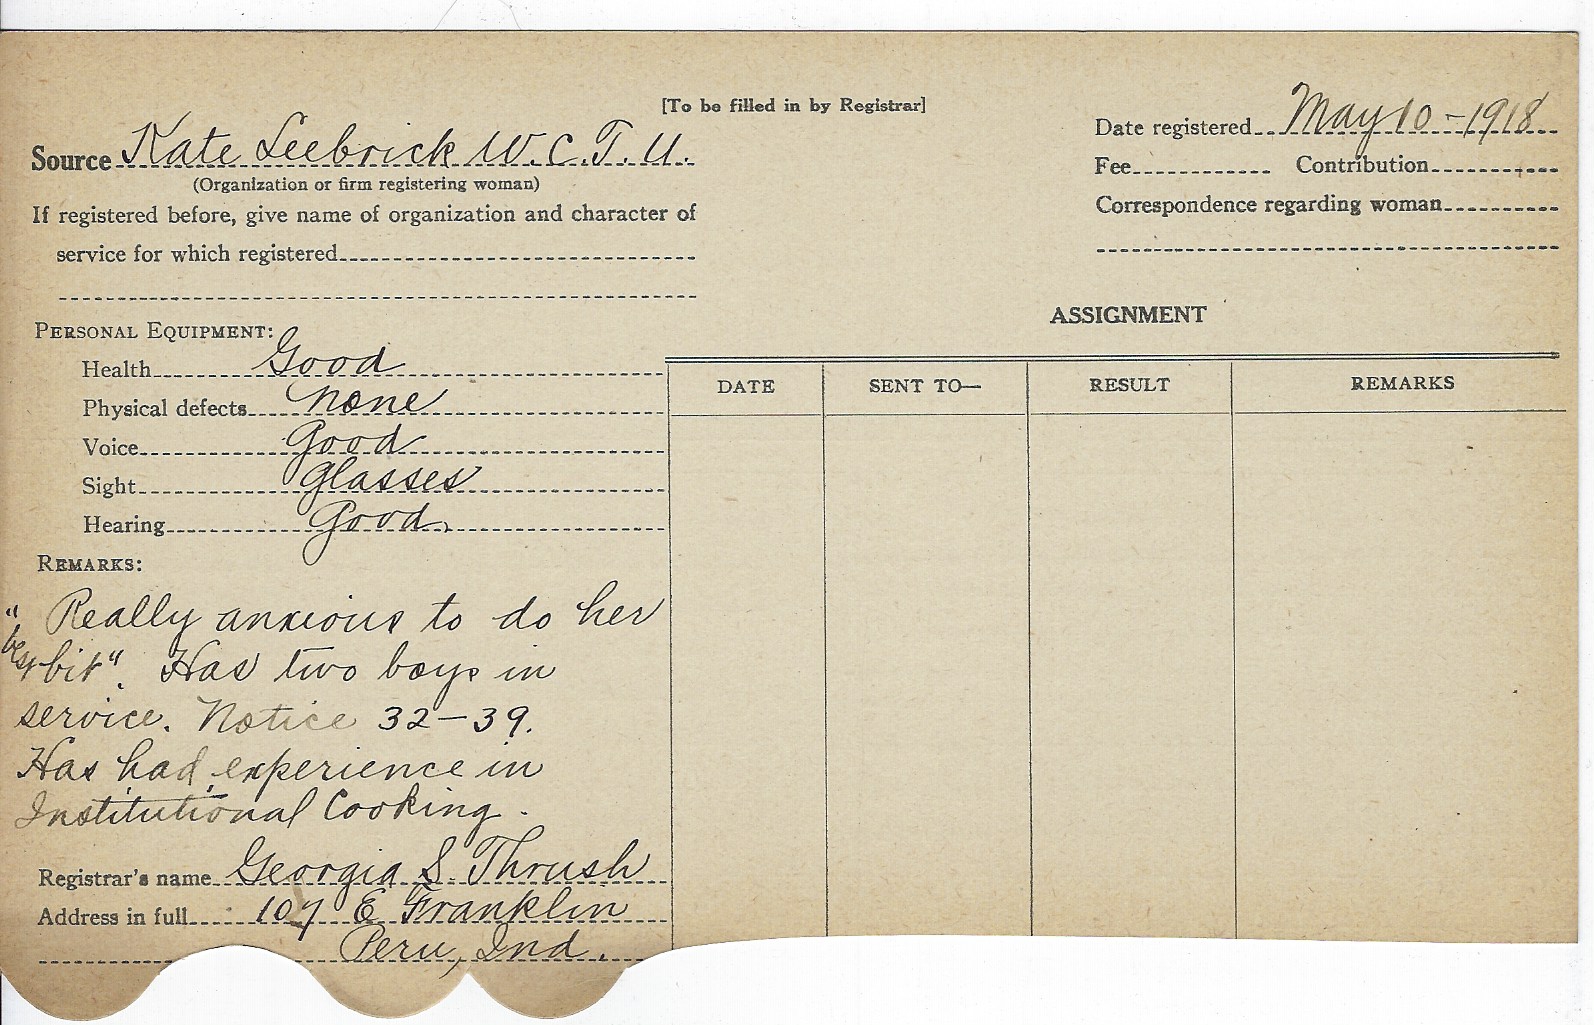 [To be filled in by Registrar]
Source Kate Leebrick W.C.T.U.
(Organization or firm registering woman)
If registered before, give name of organization and character of
service for which registered
Date registered May 10-1918
Fee Contribution
Correspondence regarding woman
PERSONAL EQUIPMENT:
Health Good
Physical defects None
Voice Good
Sight Glasses
Hearing Good.
REMARKS:
" Really anxious to do her
best bit". Has two boys in
service. Notice 32-39.
Has had experience in
Institutional Cooking.
Registrar's name Georgia S. Thrush
Address in full 107 E Franklin
Peru, Ind.
ASSIGNMENT
DATE SENT TO— RESULT REMARKS